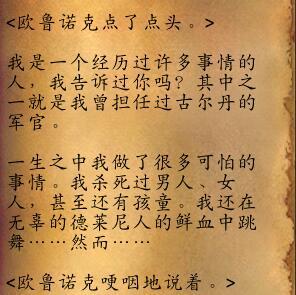 <欧鲁诺克点了点头。>
我是一个经历过许多事情的
人，我告诉过你吗？其中之
一就是我曾担任过古尔丹的
军官。
一生之中我做了很多可怕的
事情。我杀死过男人、女
人，甚至还有孩童。我还在
无辜的德莱尼人的鲜血中跳
舞……然而……
<欧鲁诺克哽咽地说着。>